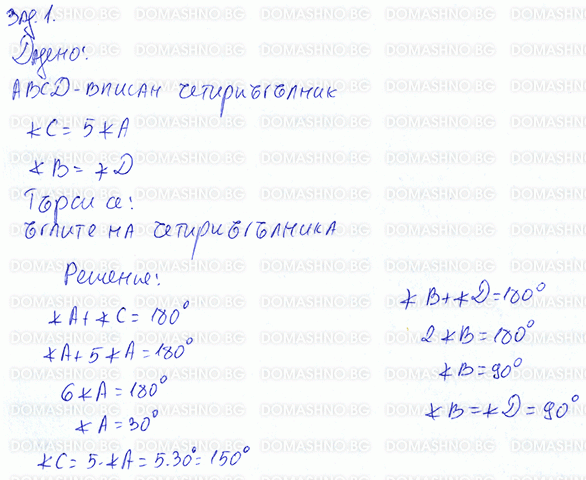 Зад. 1.
Дадено:
ABCD - вписан четириъгълник
∢C = 5∢A
∢B = ∢D
Търси се:
ъглите на четириъгълника
Решение:
∢A + ∢C = 180°
∢A + 5∢A = 180°
6∢A = 180°
∢A = 30°
∢C = 5.∢A = 5.30° = 150°
∢B + ∢D = 180°
2∢B = 180°
∢B = 90°
∢B = ∢D = 90°
DOMASHNO.BG